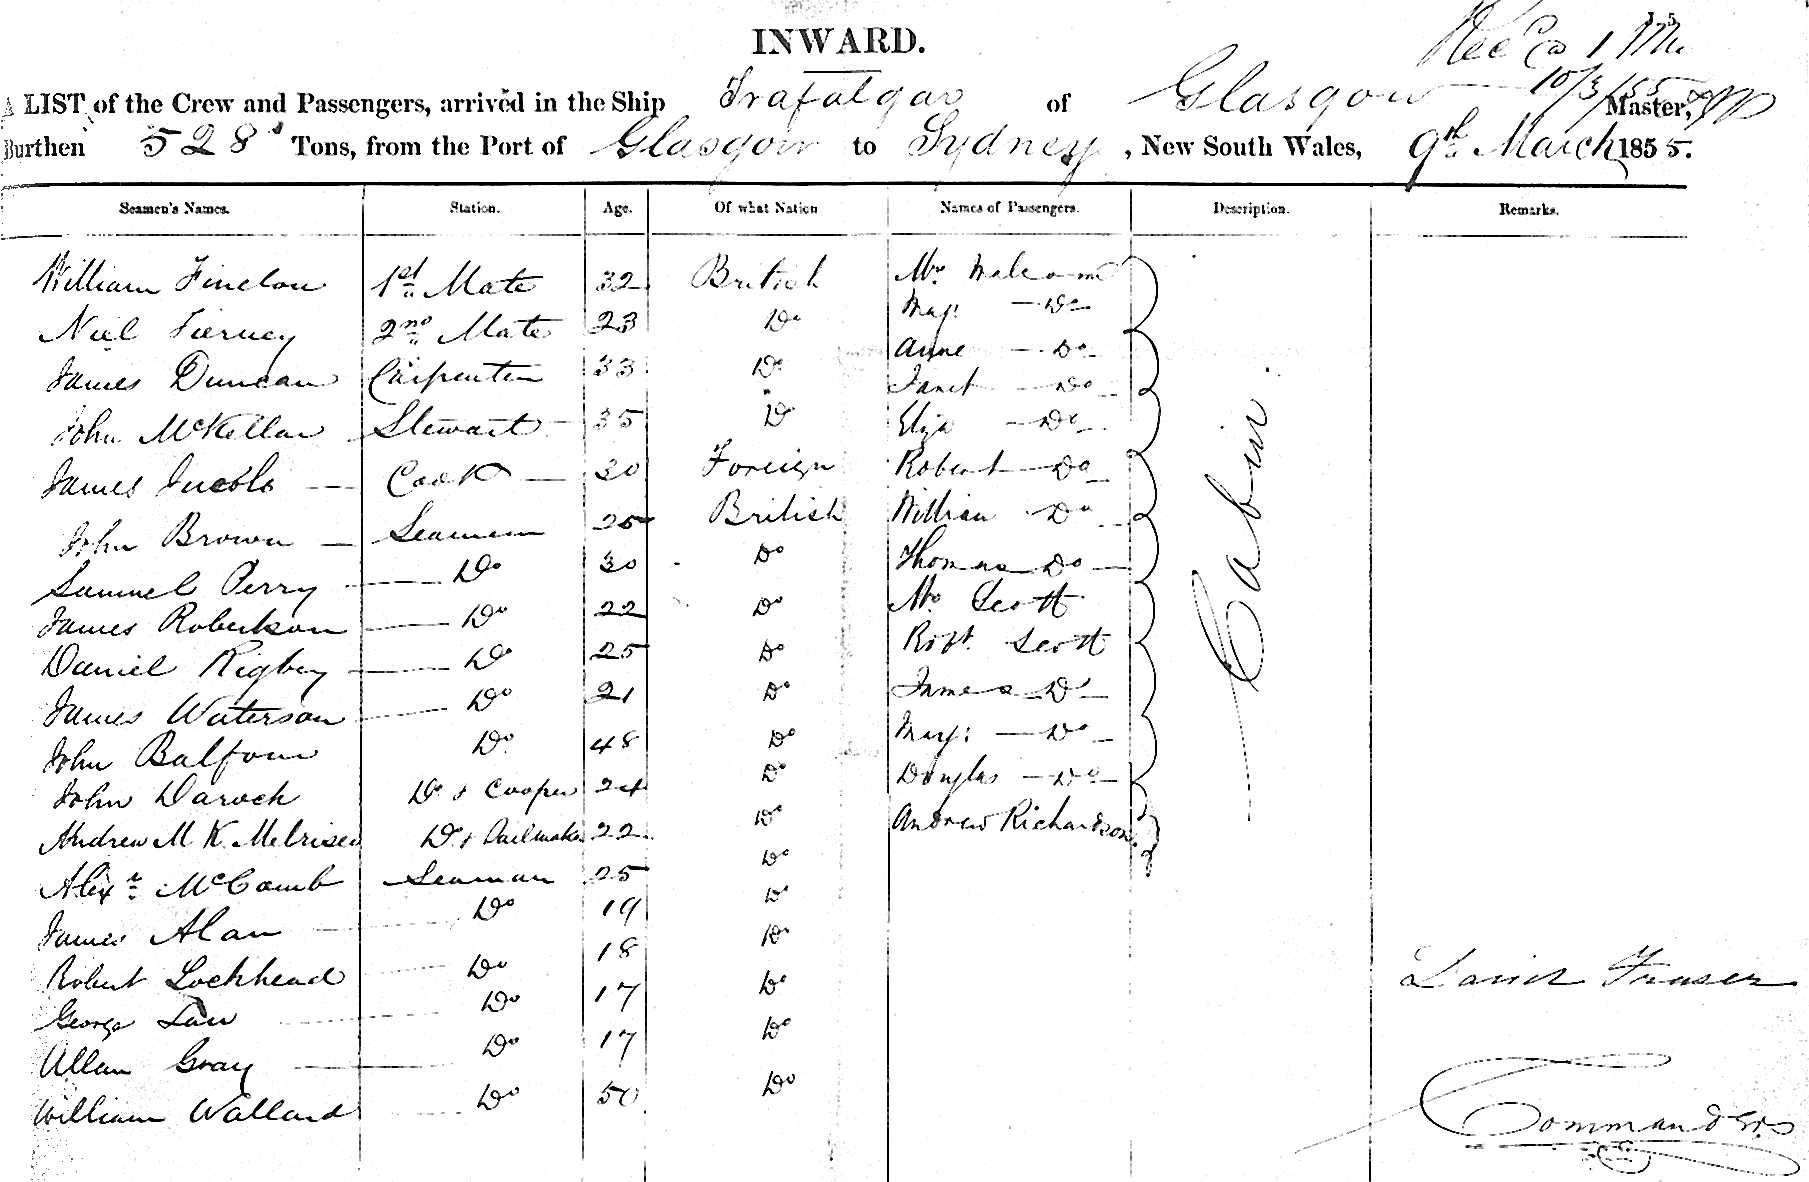 15
Rec^d 1 Mr.
INWARD.
10/3/55
A LIST of the Crew and Passengers, arrived in the Ship Trafalgar of Glasgow Master,
Burthen 528 Tons, from the Port of Glasgow to Sydney, New South Wales, 9th March 1855.
Seamen's Names. Station. Age. Of what Nation Names of Passengers. Description. Remarks.
William Finelon 1st Mate 32 British Mr Malcom
Mary Do
Niel Tierney 2nd Mate 23 Do
Anne Do
James Duncan Carpenter 33 Do Janet Do
John McKellar Stewart 35 Do Eliza Do
James Jucobs Cook 30 Foreign Robert Do
John Brown Seamen 25 British William Do
Samuel Perry Do 30 Do Thomas Do
James Robertson Do 22 Do Mr Scott
Daniel Rigbey Do 25 Do Robt Scott
James Waterson Do 21 Do James Do
John Balfour Do 48 Do Mary Do
John Daroch Do & Cooper 24 Do Douglas Do
Andrew M K Do & Sailmaker 22 Do Andrew Richardson
Alexr McComb Seaman 25 Do
James Alan Do 19 Do
Robert Lockhead Do 18 Do
George Law Do 17 Do
Allan Gray Do 17 Do
William Wallard Do 50 Do
Cabin
Fraser
Commander